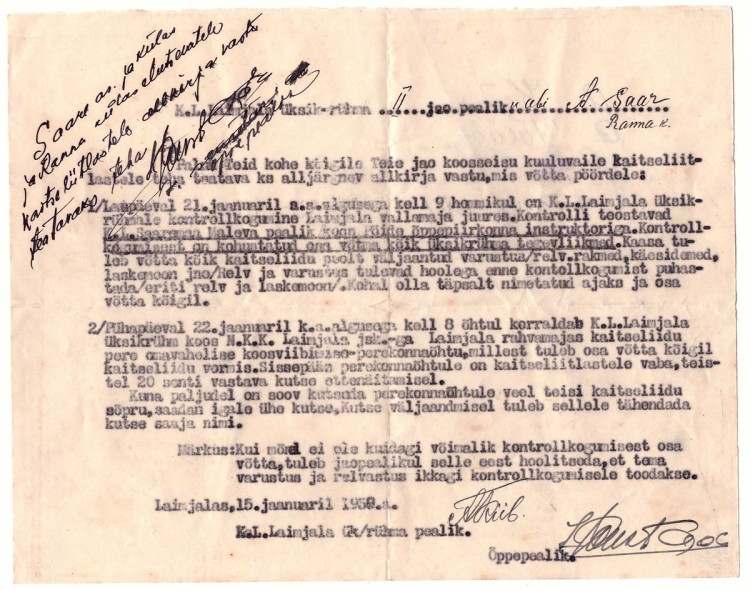 Saare as. ja külas
ja Ranna külas elutsevatele
kaitseliitlastele allkirja vastu
teatavaks teha
K.L.Laimjala üksik-rühma II jao pealik u abi A. Saar
Ranna k.
Palun Teid kohe kõigile Teie jao koosseisu kuuluvaile kaitseliit-
lastele teha teatava ks alljärgnev allkirja vastu,mis võtta pöördele:
1/Laupäeval 21.jaanuaril a.s.algusega kell 9 hommikul on K.L.Laimjala üksik-
rühmale kontrollkogumine Laimjala vallamaja juures.Kontrolli teostavad
K.L.Saaremaa Maleva pealik koos Pöide õppepiirkonna instruktoriga.Kontroll-
kogumisest on kohustatud osa võtma kõik üksikrühma tegevliikmed.Kaasa tu-
leb võtta kõik kaitseliidu poolt väljaantud varustus/relv,rakmed,käesidemed,
laskemoon jne/Relv ja varustus tulevad hoolega enne kontollkogumist puhas-
tada/eriti relv ja laskemoon/.Kohal olla täpsalt nimetatud ajaks ja osa
võtta kõigil.
2/Pühapäeval 22.jaanuaril k.a.algusega kell 8 õhtul korraldab K.L.Laimjala
üksikrühm koos N.K.K. Laimjala jsk.-ga Laimjala rahvamajas kaitseliidu
pere omavahelise koosviibimise-perekonnaõhtu,millest tuleb osa võtta kõigil
kaitseliidu vormis.Sissepääs perekonnaõhtule on kaitseliitlastele vaba,teis-
tel 20 senti vastava kutse ettenäitamisel.
Kuna paljudel on soov kutsuda perekonnaõhtule veel teisi kaitseliidu
sõpru,saadan igale ühe kutse.Kutse väljaandmisel tuleb sellele tähendada
kutse saaja nimi.
Märkus:Kui mõnel ei ole kuidagi võimalik kontrollkogumisest osa
võtta,tuleb jaopealikul selle eest hoolitseda,et tema
varustus ja relvastus ikkagi kontrollkogumisele toodakse.
Laimjalas,15.jaanuaril 1939.a.
K.L.Laimjala ük/rühma pealik.
Õppepealik.